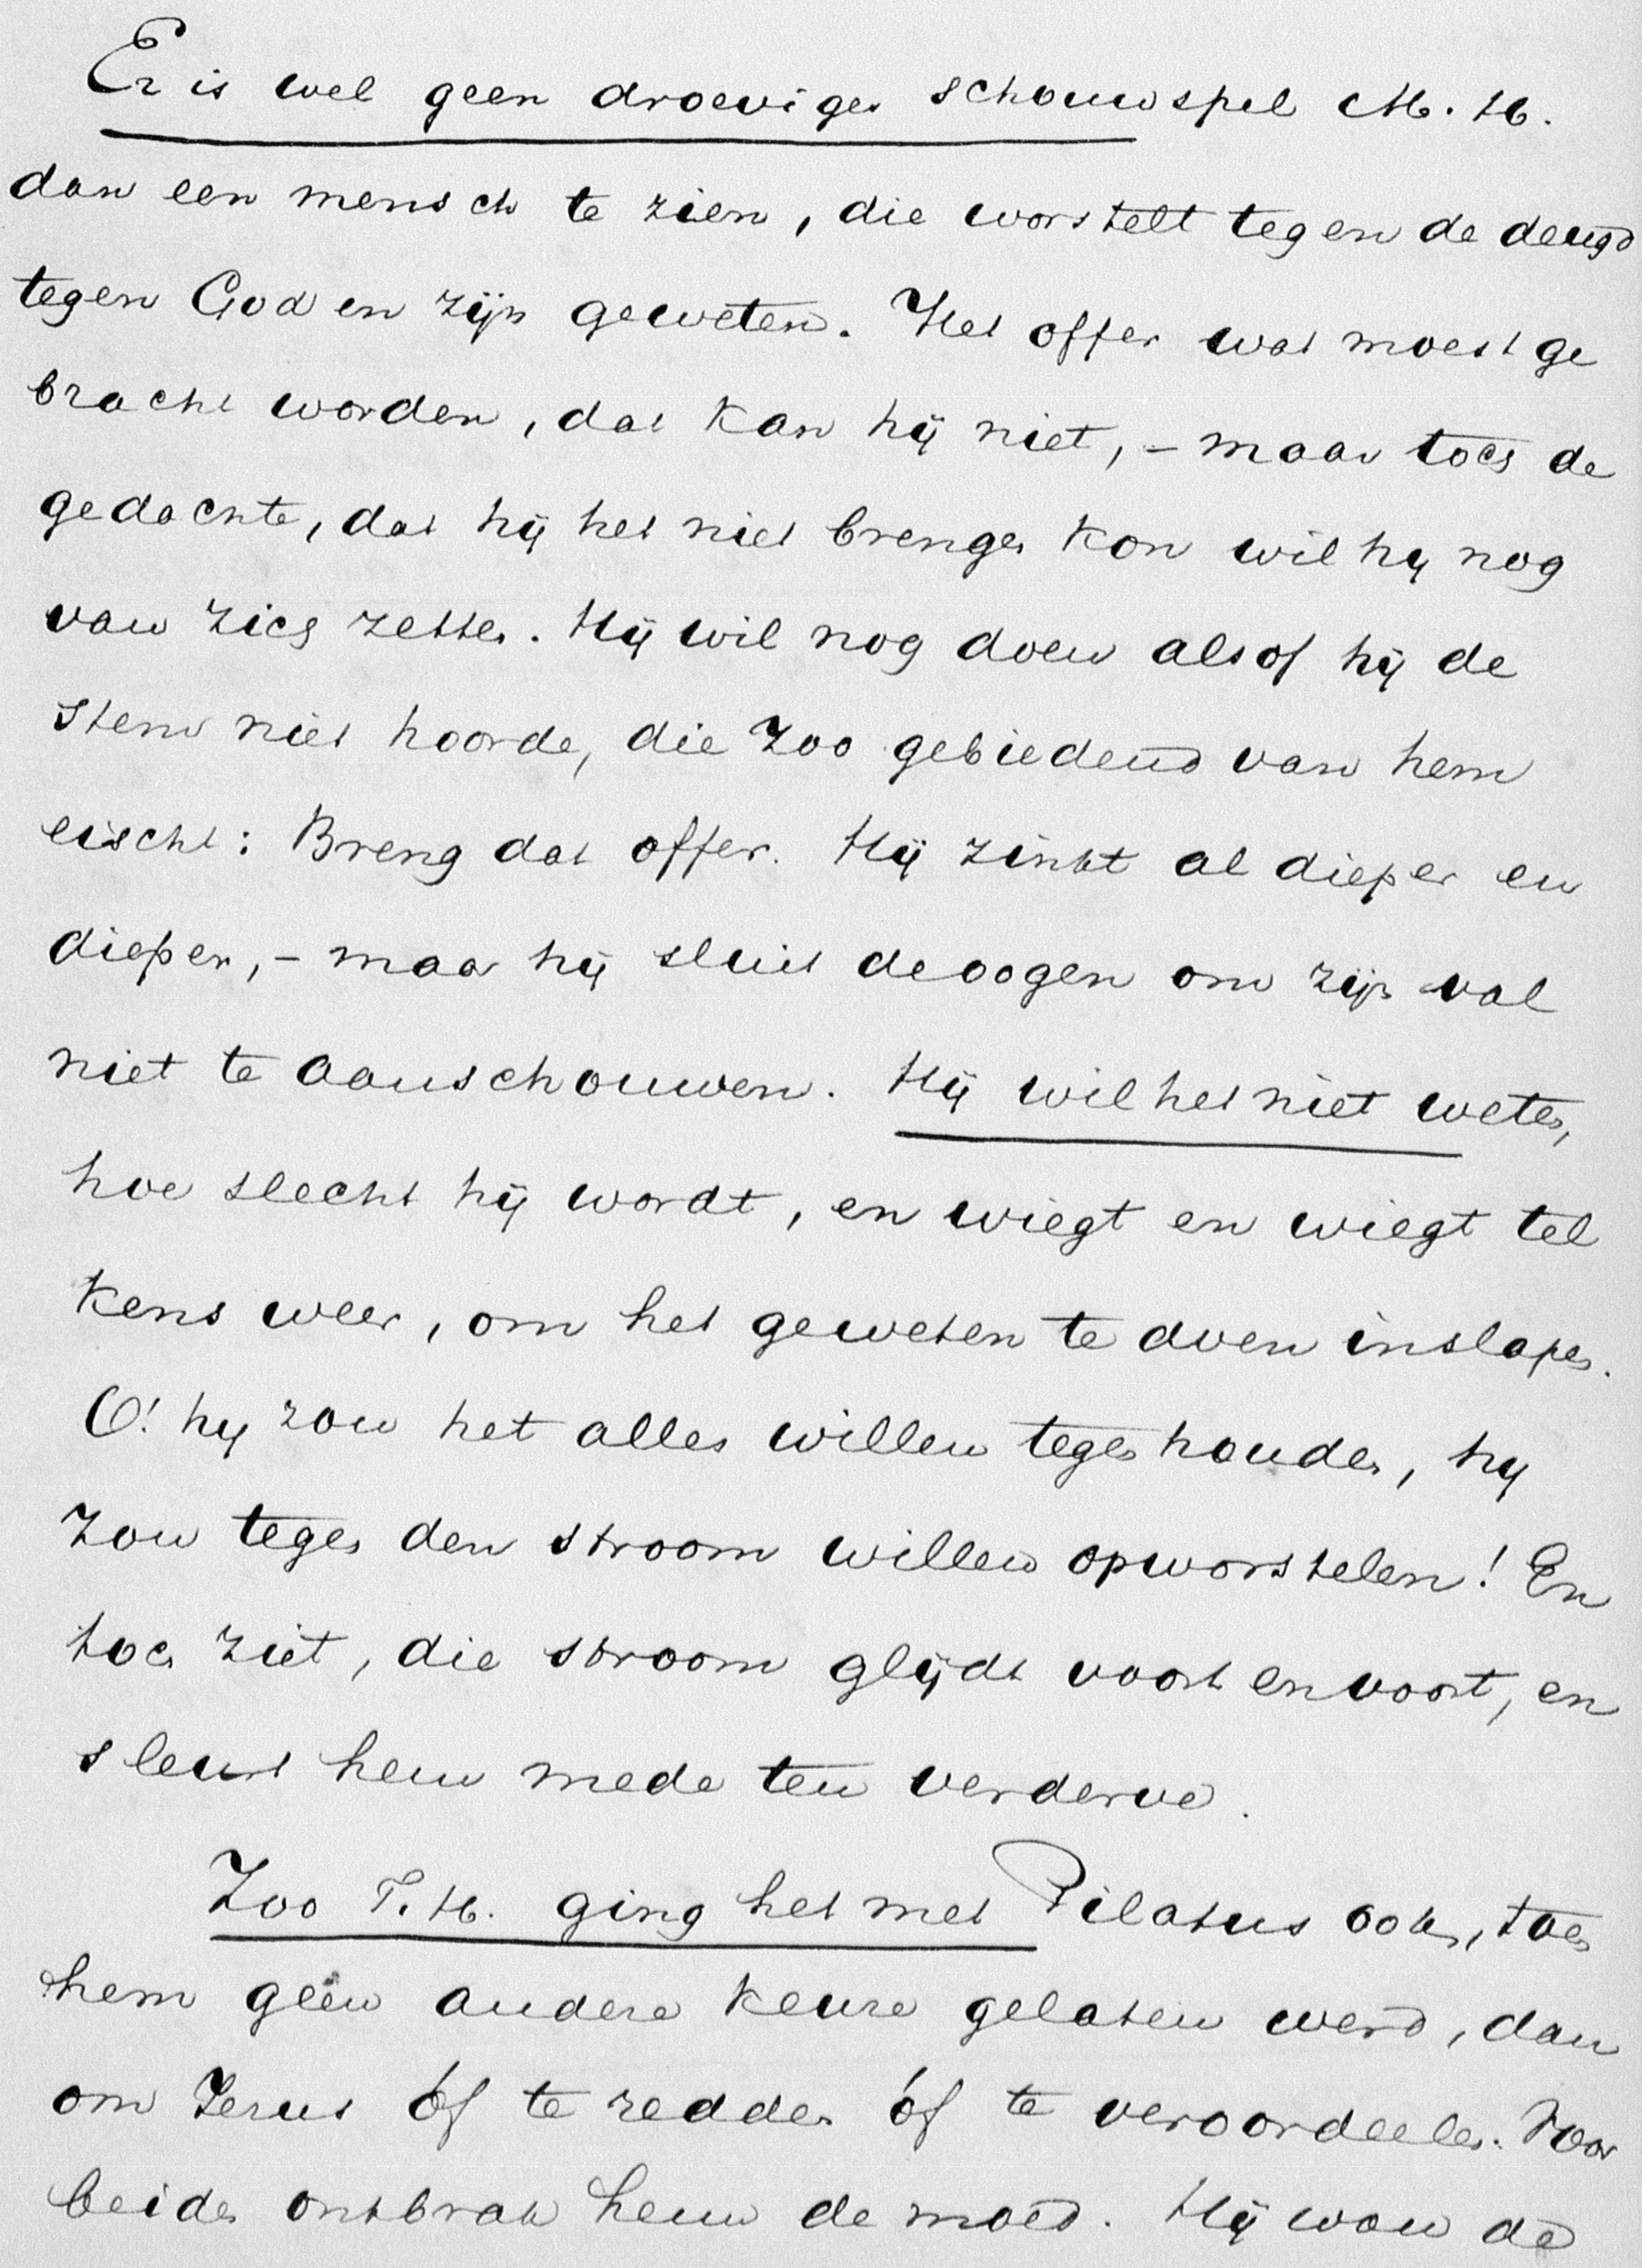 Er is wel geen droeviger schouwspel M. H.
dan een mensch te zien, die worstelt tegen de deugd
tegen God en zijn geweten. Het offer wat moest ge
bracht worden, dat kan hij niet, – maar toch de
gedachte, dat hij het niet brengen kon wil hij nog
van zich zetten. Hij wil nog doen alsof hij de
stem niet hoorde, die zoo gebiedend van hem
eischt: Breng dat offer. Hij zinkt al dieper en
dieper, – maar hij sluit de oogen om zijn val
niet te aanschouwen. Hij wil het niet weten,
hoe slecht hij wordt, en wiegt en wiegt tel
kens weer, om het geweten te doen inslapen.
O! hij zou het alles willen tegenhouden, hij
zou tegen den stroom willen opworstelen! En
toch ziet, die stroom glijdt voort en voort, en
sleurt hem mede ten verderve.
Zoo T. H. ging het met Pilatus ook, toen
hem geen andere keuze gelaten werd, dan
om Jezus óf te redden óf te veroordeelen. Voor
beide ontbrak hem de moed. Hij wou de